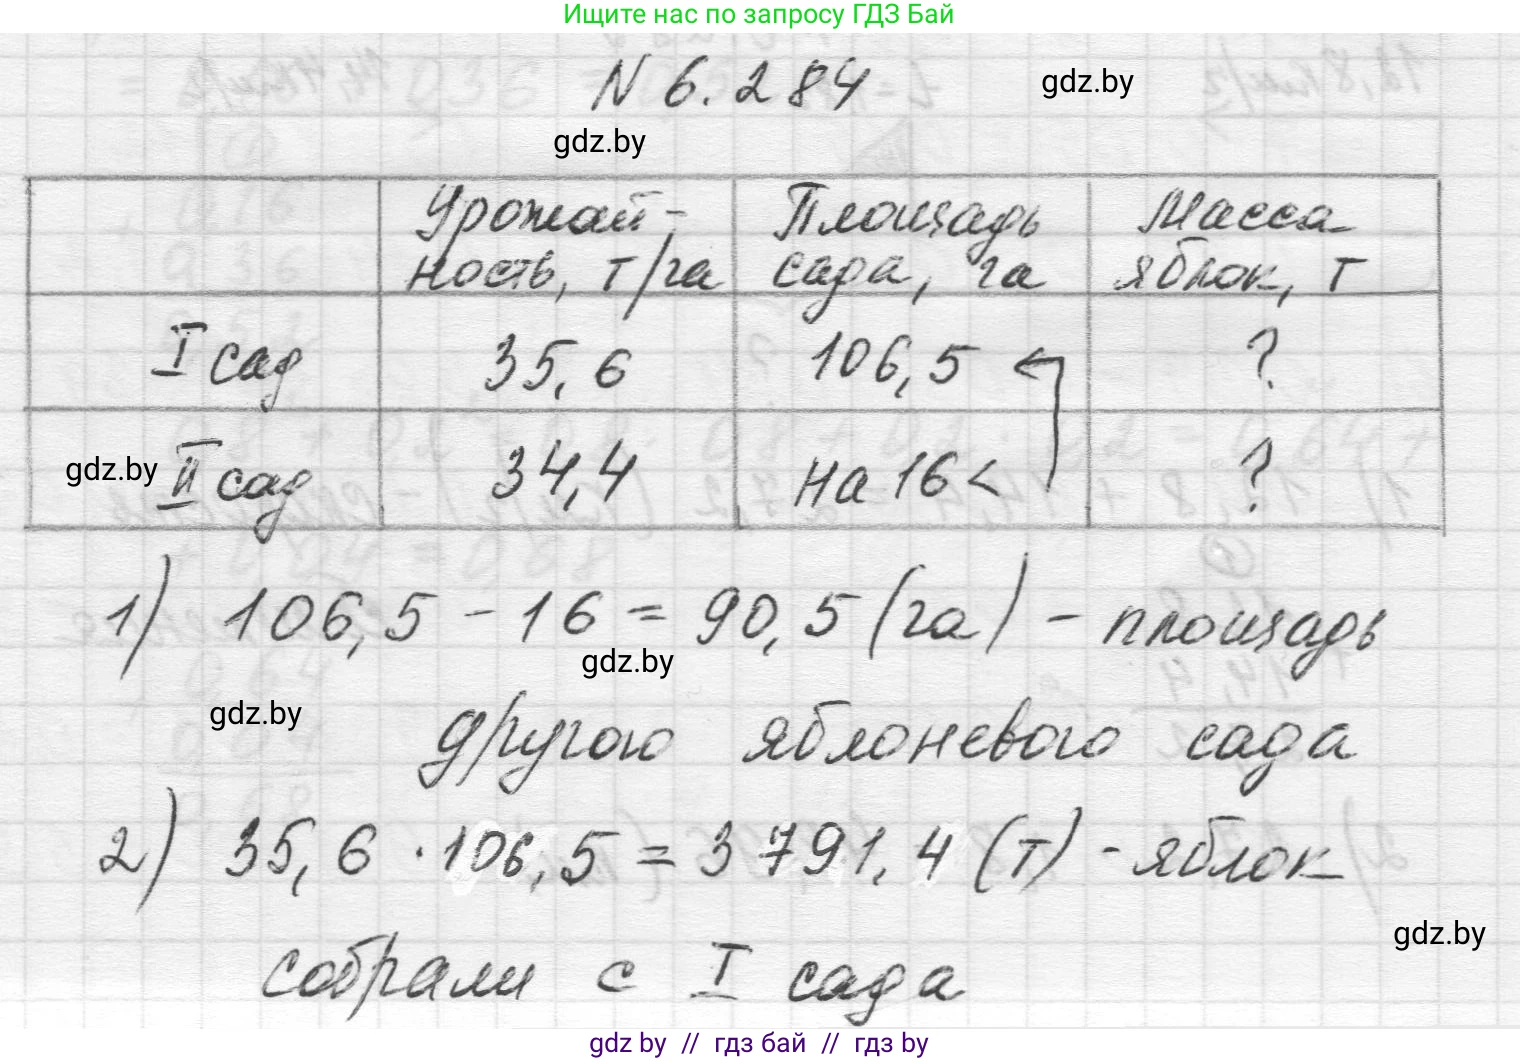 Ищите нас по запросу ГДЗ Бай
N 6.284
gdz.by
gdz.by
Урожай- Площадь Масса
ность, т/га сада, га яблок, т
I сад 35,6 106,5 ?
gdz.by II сад 34,4 на 16 < ?
1) 106,5 - 16 = 90,5 (га) - площадь
gdz.by
gdz.by
другого яблоневого сада
2) 35,6 · 106,5 = 3 791,4 (т) - яблок
gdz.by
собрали с I сада
gdz by // гдз бай // гдз by